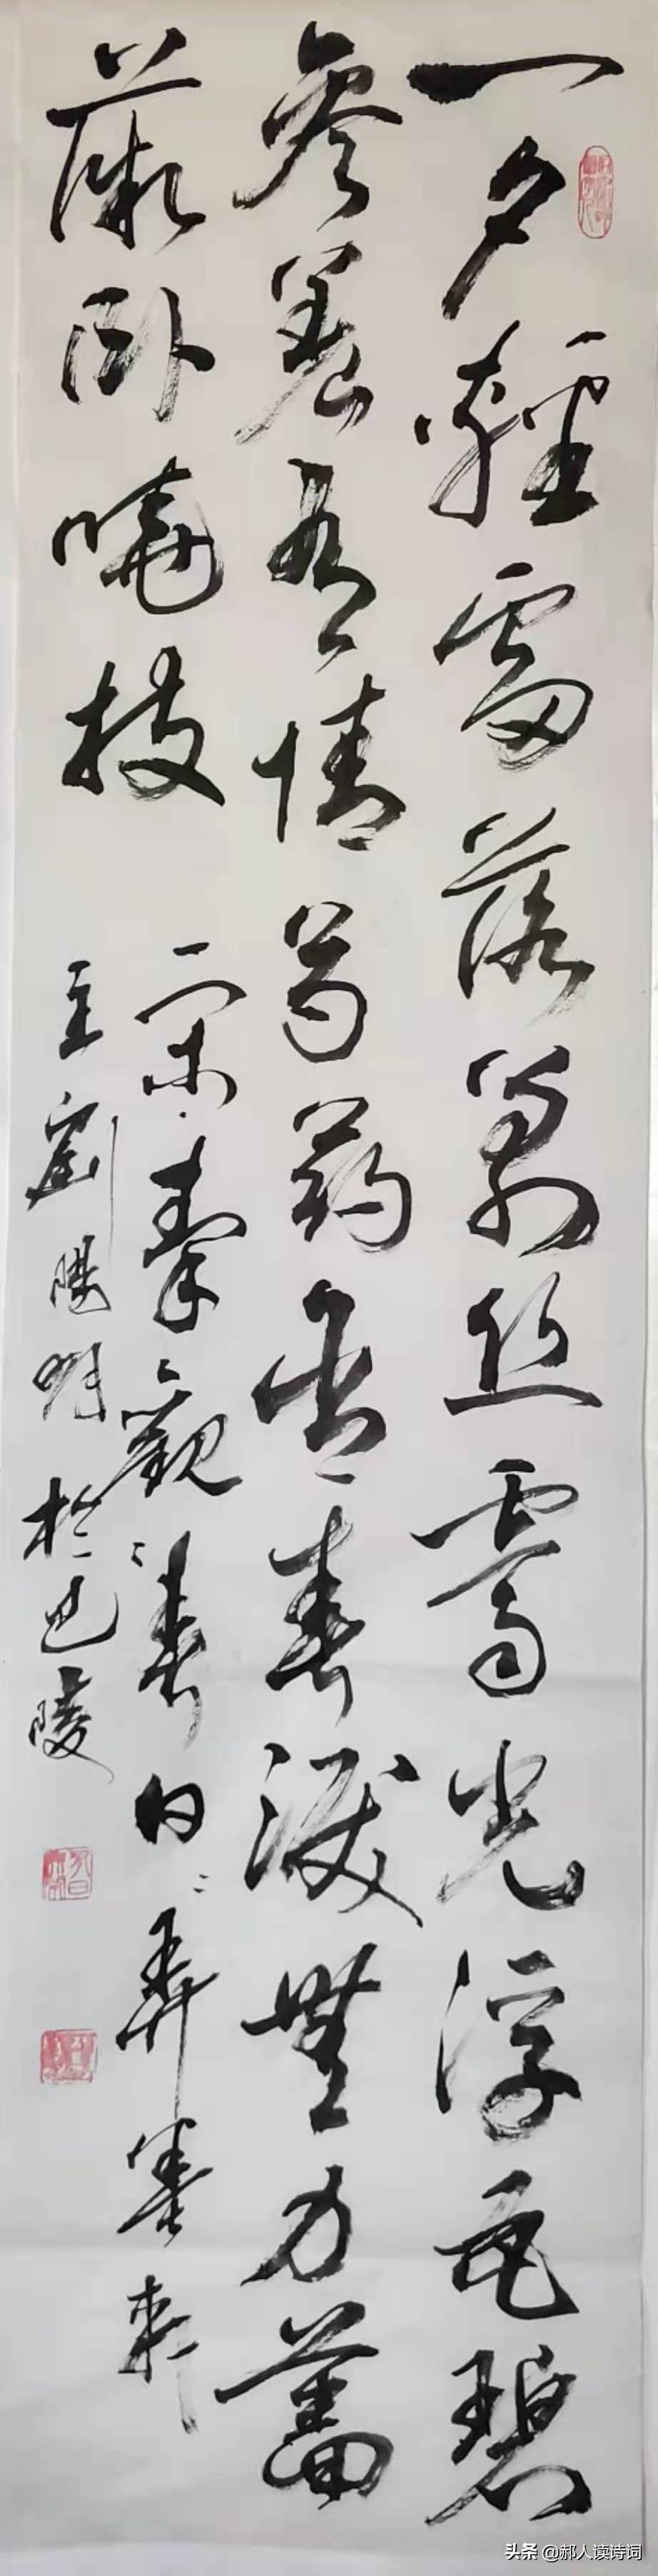 一夕轻雷落万丝霁光浮瓦碧
参差有情芍药含春泪无力蔷
薇卧晓枝
宋秦观春日弄墨轩
主刘阳明于巴陵
头条 @郝人读诗词